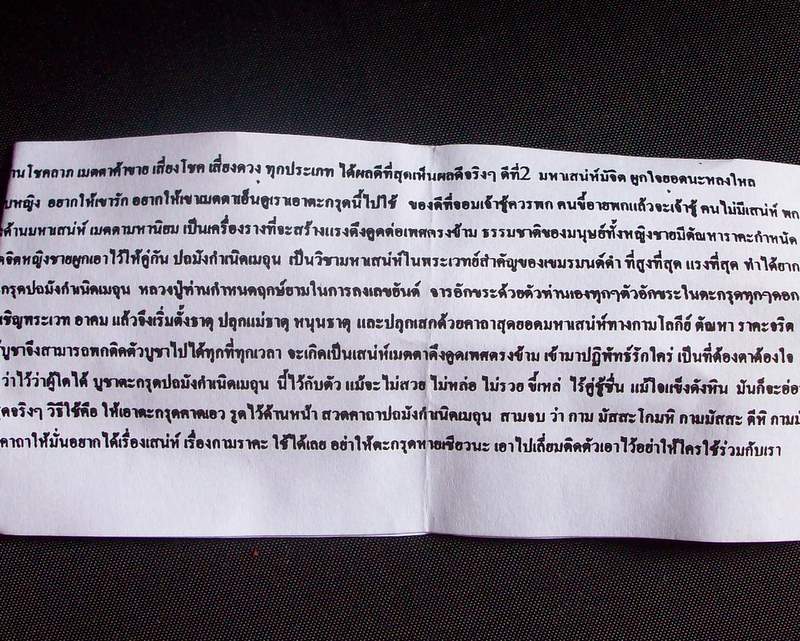 านโชคลาภ เมตตาค้าขาย เสี่ยงโชค เสี่ยงดวง ทุกประเภท ได้ผลดีที่สุดเห็นผลดีจริงๆ ดีที่2 มหาเสน่ห์มัจิต ผูกใจยอดนะหลงใหล
บหญิง อยากให้เขารัก อยากให้เขาเมตตาเอ็นดูเราเอาตะกรุดนี้ไปใช้ ของดีที่จอมเจ้าชู้ควรพก คนขี้อายพกแล้วจะเจ้าชู้ คนไม่มีเสน่ห์ พก
ด้านมหาเสน่ห์ เมตตามหานิยม เป็นเครื่องรางที่จะสร้างแรงดึงดูดต่อเพศตรงข้าม ธรรมชาติของมนุษย์ทั้งหญิงชายมีตัณหาราคะกำหนัด
จิตหญิงชายผูกเอาไว้ให้คู่กัน ปถมังกำเนิดเมถุน เป็นวิชามหาเสน่ห์ในพระเวทย์สำคัญของเขมรมนต์ดำ ที่สูงที่สุด แรงที่สุด ทำได้ยาก
กรุดปถมังกำเนิดเมถุน หลวงปู่ท่านกำหนดฤกษ์ยามในการลงเลขยันต์ จารอักขระด้วยตัวท่านเองทุกๆตัวอักขระในตะกรุดทุกๆดอก
เชิญพระเวท อาคม แล้วจึงเริ่มตั้งธาตุ ปลุกแม่ธาตุ หนุนธาตุ และปลุกเสกด้วยคาถาสุดยอดมหาเสน่ห์ทางกามโลกีย์ ตัณหา ราคะจริต
บูชาจึงสามารถพกติดตัวบูชาไปได้ทุกที่ทุกเวลา จะเกิดเป็นเสน่ห์เมตตาดึงดูดเพศตรงข้าม เข้ามาปฏิพัทธ์รักใคร่ เป็นที่ต้องตาต้องใจ
ว่าไว้ว่าผู้ใดได้ บูชาตะกรุดปถมังกำเนิดเมถุน นี้ไว้กับตัว แม้จะไม่สวย ไม่หล่อ ไม่รวย ขี้เหล่ ไร้คู่ชู้ชื่น แม้ใจแข็งดังหิน มันก็จะอ่อ
ดจริงๆ วิธีใช้คือ ให้เอาตะกรุดคาดเอว รูดไว้ด้านหน้า สวดคาถาปถมังกำเนิดเมถุน สามจบ ว่า กาม มัสสะโกมหิ กามมัสสะ ตีหิ กามมั
คาถาให้มั่นอยากได้เรื่องเสน่ห์ เรื่องกามราคะ ใช้ได้เลย อย่าให้ตะกรุดหายเชียวนะ เอาไปเลี่ยมติดตัวเอาไว้อย่าให้ใครใช้ร่วมกับเรา